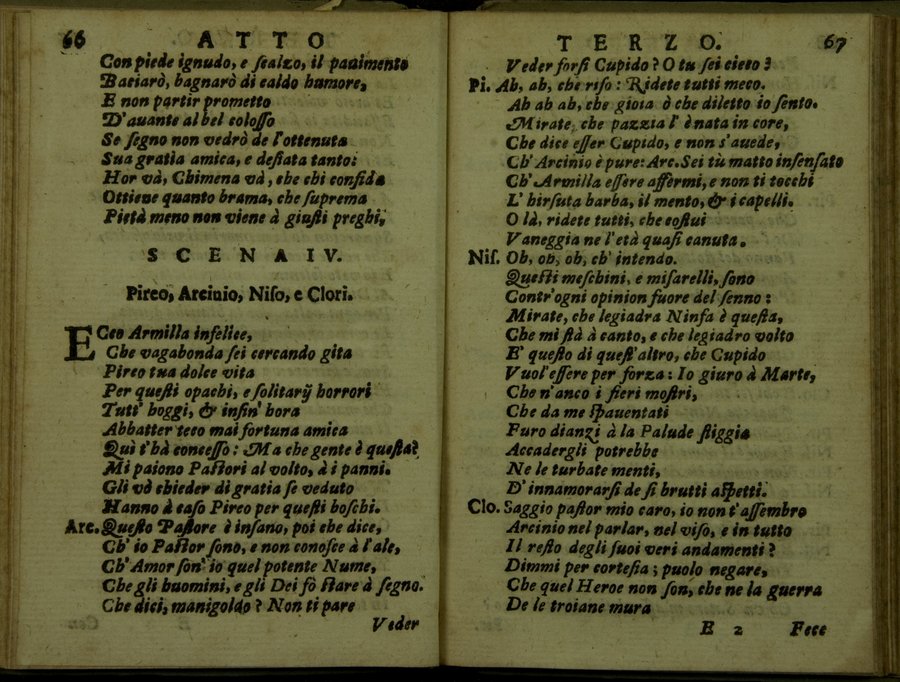 66 ATTO
Con piede ignudo, e ſcalzo, il pauimento
Baciarò, bagnarò di caldo humore,
E non partir prometto
D'auante al bel coloſſo
Se ſegno non vedrò de l'ottenuta
Sua gratia amica, e deſiata tanto:
Hor và, Chimena và, che chi confida
Ottiene quanto brama, che ſuprema
Pietà meno non viene à giuſti preghi,
SCENA IV.
Pireo, Arcinio, Niſo, e Clori.
ECco Armilla infelice,
Che vagabonda ſei cercando gita
Pireo tua dolce vita
Per queſti opachi, e ſolitarij horrori
Tutt' hoggi, & infin' hora
Abbatter teco mai fortuna amica
Quì t'hà conceſſo: Ma che gente è queſta?
Mi paiono Paſtori al volto, à i panni.
Gli vò chieder di gratia ſe veduto
Hanno à caſo Pireo per queſti boſchi.
Arc. Queſto Paſtore è inſano, poi che dice,
Ch' io Paſtor ſono, e non conoſce à l'ale,
Ch' Amor ſon' io quel potente Nume,
Che gli huomini, e gli Dei fò ſtare à ſegno.
Che dici, manigoldo? Non ti pare
Veder
TERZO. 67
Veder forſi Cupido? O tu ſei cieco?
Pi. Ah, ah, che riſo: Ridete tutti meco.
Ah ah ah, che gioia ò che diletto io ſento.
Mirate, che pazzia l' è nata in core,
Che dice eſſer Cupido, e non s'auede,
Ch' Arcinio è pure: Arc. Sei tù matto inſenſato
Ch' Armilla eſſere affermi, e non ti tocchi
L' hirſuta barba, il mento, & i capelli.
O là, ridete tutti, che coſtui
Vaneggia ne l'età quaſi canuta.
Niſ. Oh, oh, oh, ch' intendo.
Queſti meſchini, e miſarelli, ſono
Contr'ogni opinion fuore del ſenno:
Mirate, che legiadra Ninfa è queſta,
Che mi ſtà à canto, e che legiadro volto
E' queſto di queſt'altro, che Cupido
Vuol'eſſere per forza: Io giuro à Marte,
Che n'anco i fieri moſtri,
Che da me ſpauentati
Furo dianzi à la Palude ſtiggia
Accadergli potrebbe
Ne le turbate menti,
D'innamorarſi de ſi brutti aſpetti.
Clo. Saggio paſtor mio caro, io non t'aſſembro
Arcinio nel parlar, nel viſo, e in tutto
Il reſto degli ſuoi veri andamenti?
Dimmi per corteſia; puolo negare,
Che quel Heroe non ſon, che ne la guerra
De le troiane mura
E 2 Fece